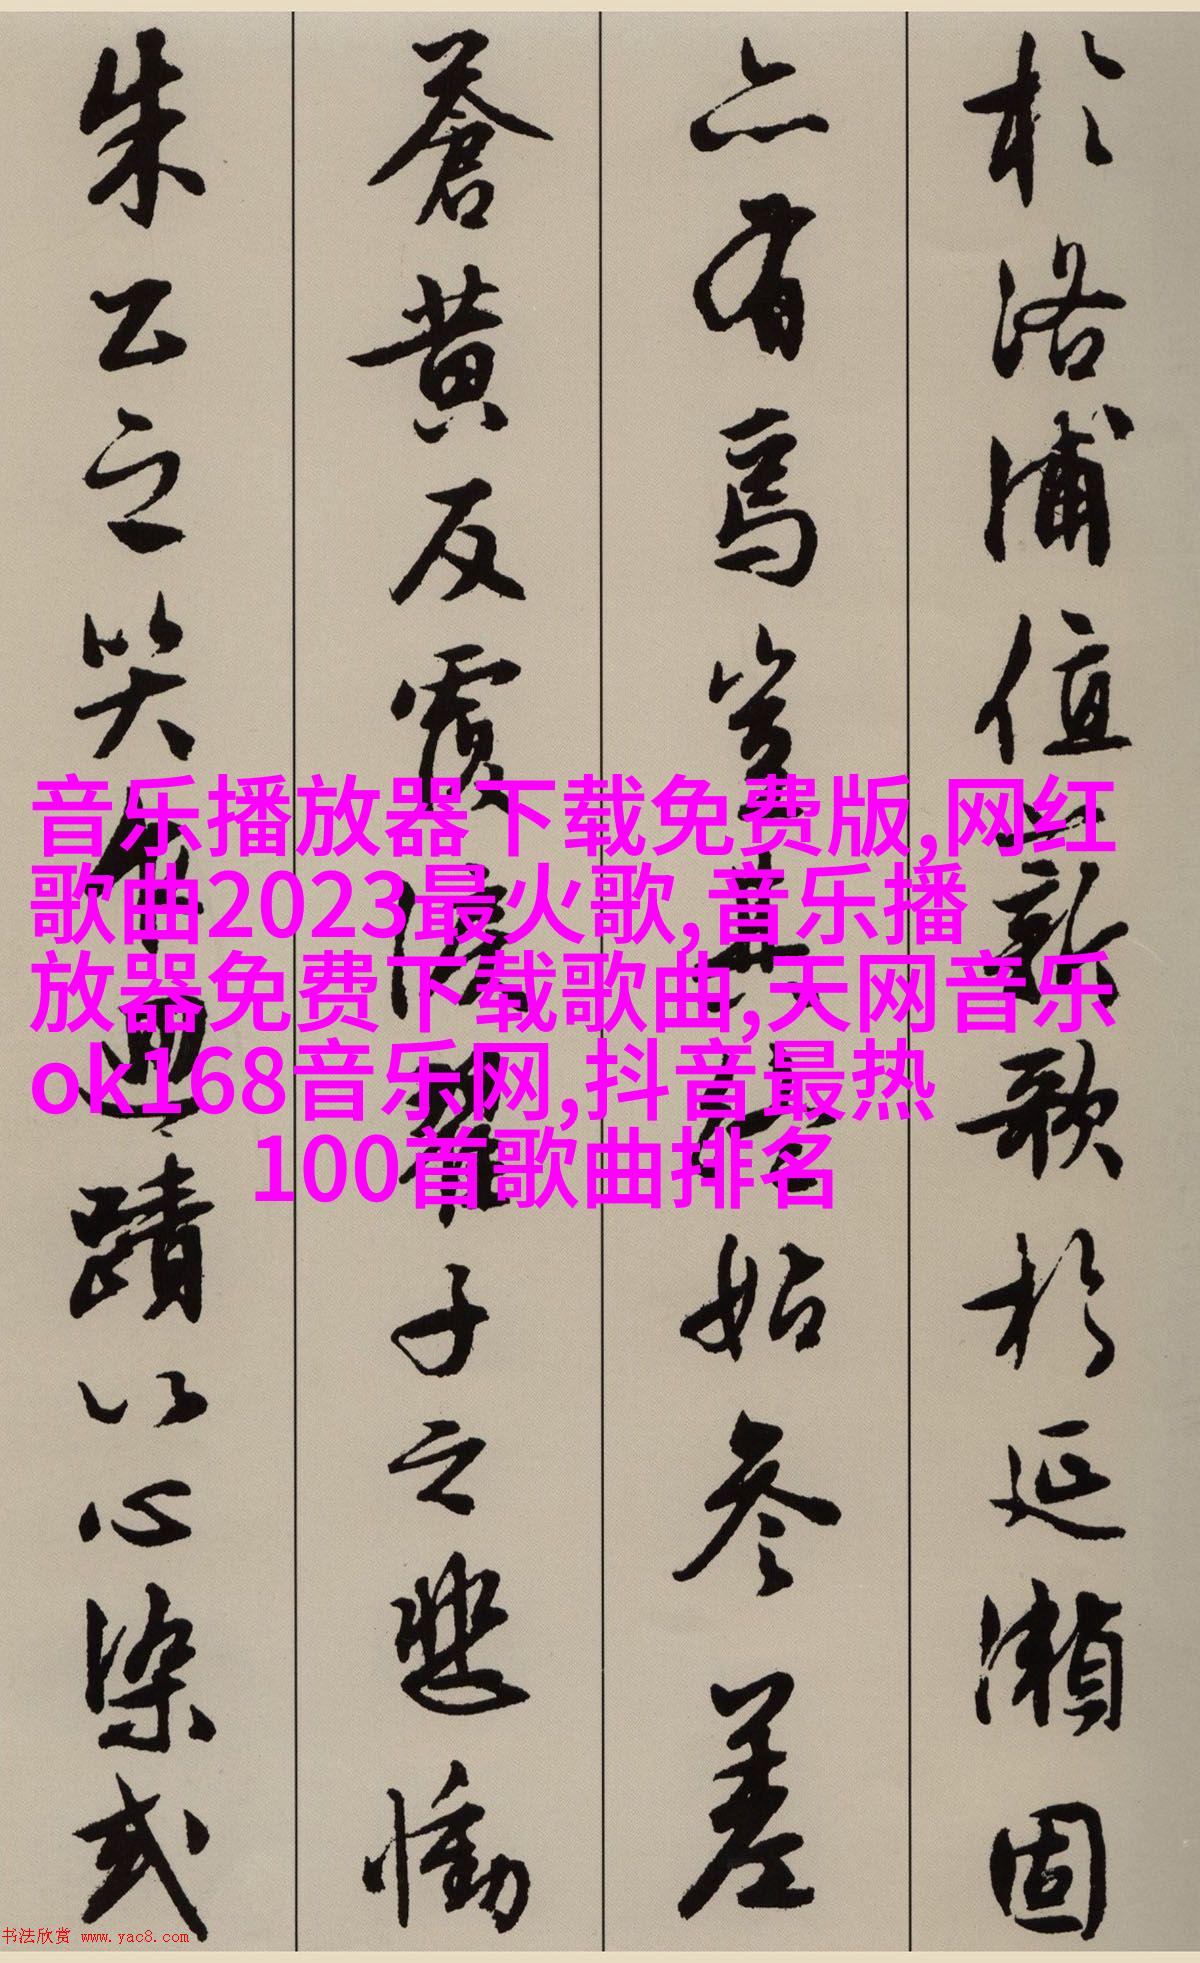 於洛浦值薪歌於延瀨固
亦有焉豈其終始參差
蒼黃反覆淚翟子之悲慟
朱公之哭乍迴蹟以心染或
音乐播放器下载免费版,网红
歌曲2023最火歌,音乐播
放器免费下载歌曲,天网音乐
ok168音乐网,抖音最热
100首歌曲排名
书法欣赏 www.yac8.com